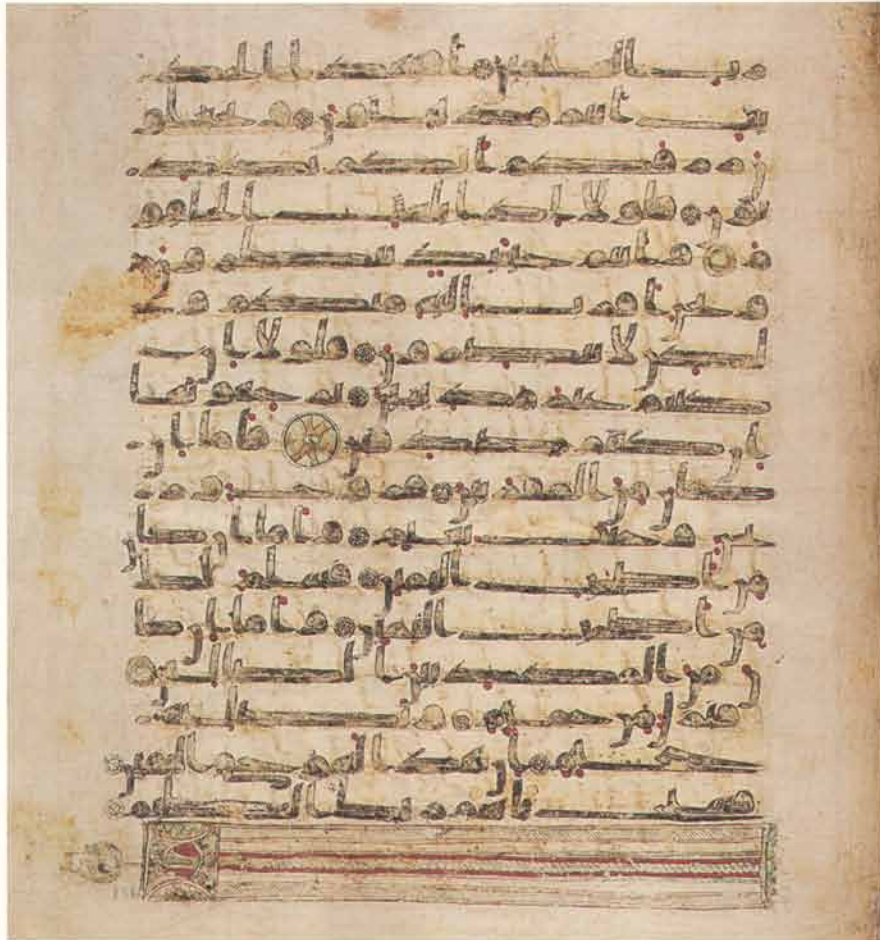 من رب العلمين افبهذا الحد
يث انتم مدهنون وتجعلو
ن رزقكم انكم تكذبو
ن فلولا اذا بلغت الحلقو
م وانتم حينئذ تنظرون
ونحن اقرب اليه منكم و
لكن لا تبصرون فلولا ان
كنتم غير مدينين ترجعونها
ان كنتم صدقين فاما ان
كان من المقربين فروح وريحن و
جنت نعيم واما ان كان
من اصحب اليمين فسلم لك
من اصحب اليمين واما ان كا
ن من المكذبين الضالين
فنزل من حميم وتصلية
جحيم ان هذا لهو حق اليقين
فسبح باسم ربك العظيم